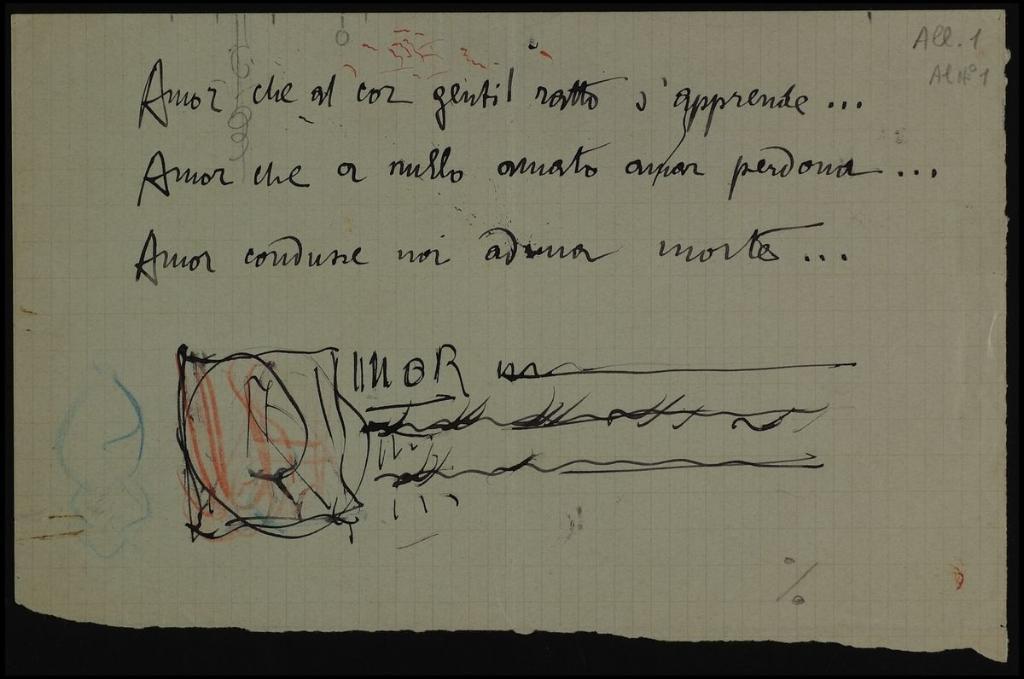 All. 1
Al N° 1
Amor che al cor gentil ratto s'apprende...
Amor che a nullo amato amar perdona...
Amor condusse noi ad una morte...
MOR
%